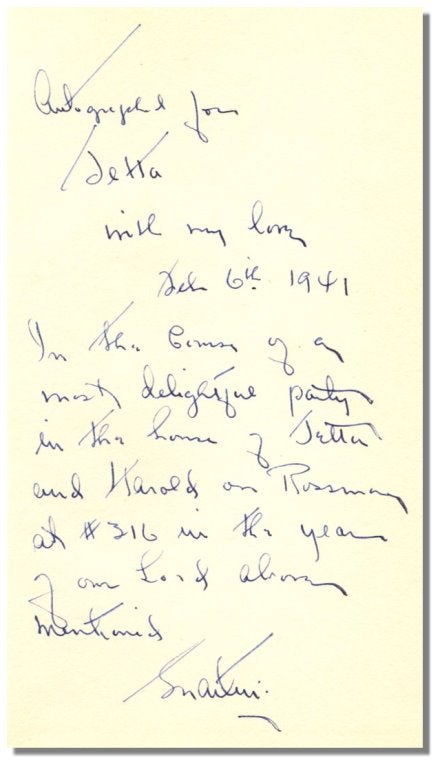 Autographed for
Jetta
with my love
Feb 6th 1941
In the course of a
most delightful party
in the house of Jetta
and Harold on Rossmore
at #316 in the year
of our Lord above
mentioned